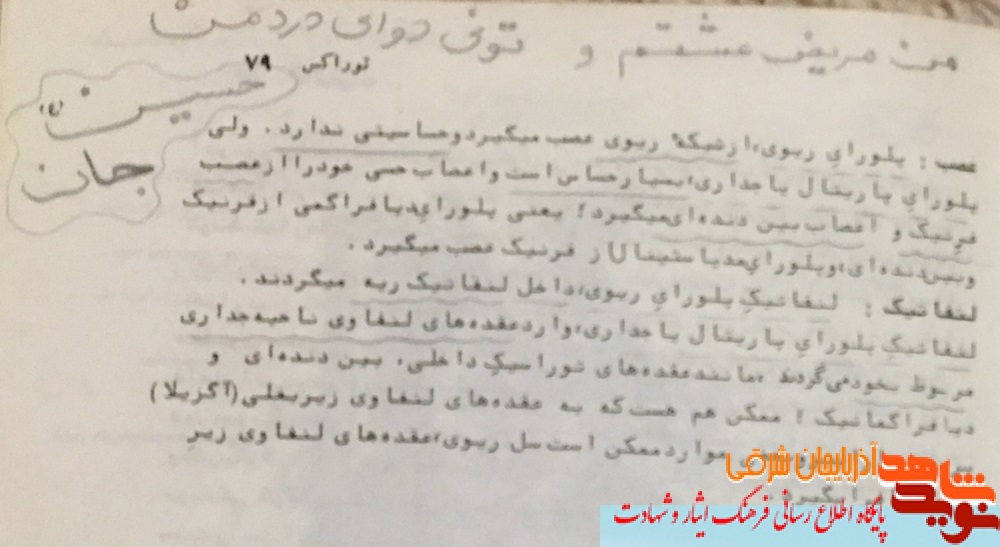 من مریض عشقتم و تونی دوای درد من
توراکس ۷۹
حسین (ع)
جان
عصب : پلورایِ ریوی،ازشبکهٔ ریوی عصب میگیردوحساسیتی ندارد. ولی
پلورایِ پاریتال یاجداری،بسیارحساس‌است واعصاب حسی خودراازعصب
فرنیک و اعصاب بین دنده‌ای‌میگیرد؛ یعنی پلورایِ‌دیافراگمی ازفرنیک
وبین‌دنده‌ای،وپلورایِ‌مدیاستینال‌از فرنیک عصب میگیرد.
لنفاتیک : لنفاتیکِ پلورایِ ریوی،داخل لنفاتیک ریه میگردند.
لنفاتیکِ پلورایِ پاریتال یاجداری،واردعقده‌های لنفاوی ناحیه‌جداری
مربوط بخودمی‌گردند ،مانندعقده‌های توراسیکِ داخلی، بین دنده‌ای و
دیافراگماتیک ؛ ممکن هم هست‌که به عقده‌های لنفاوی زیربغلی(آگزیلا)
مواردممکن است‌سل ریوی،عقده‌های لنفاوی زیرِ
نوید شاهد
آذربایجان شرقی
پایگاه اطلاع رسانی فرهنگ ایثار و شهادت